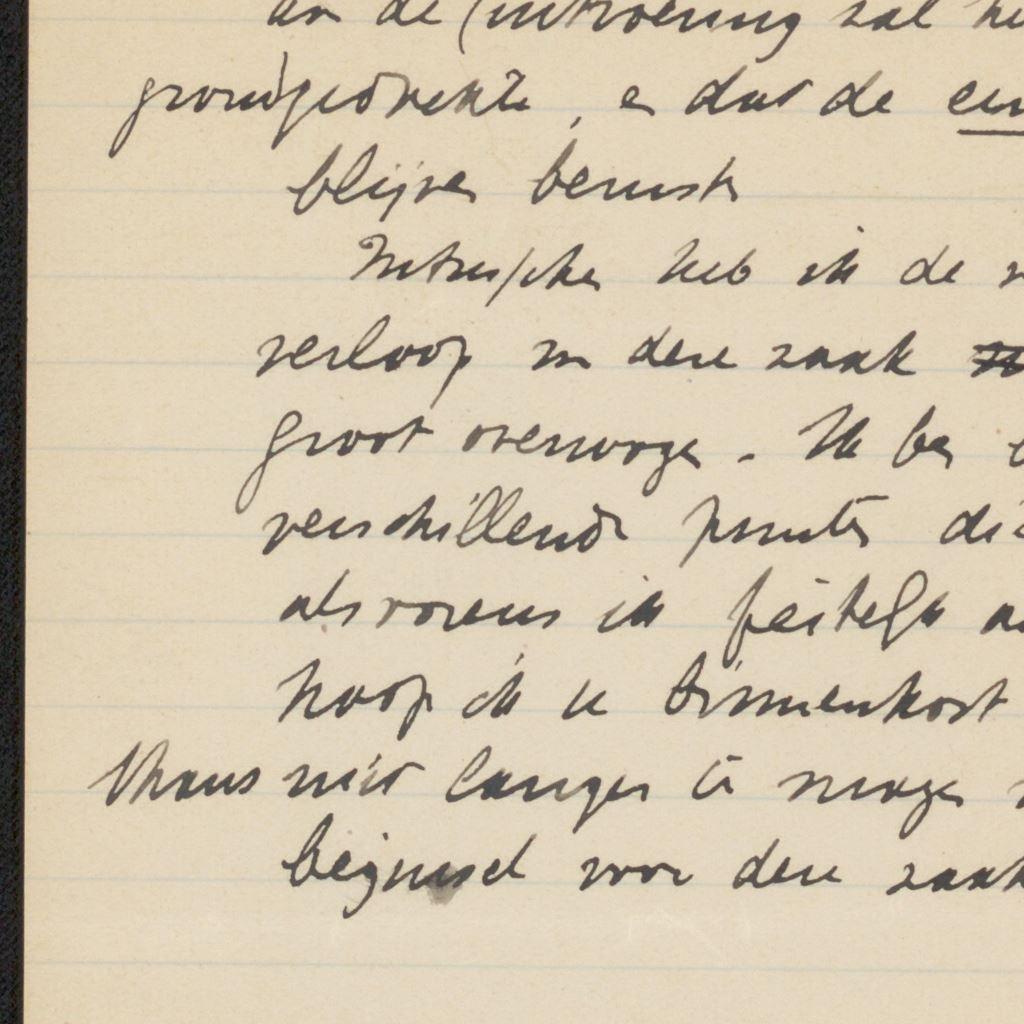 de uitvoering zal
grondgedachte, en dat de een
blijven berusten
Intusschen heb ik de
verloop in deze zaak
groot overwogen. Ik ben
verschillende punten die
alsvorens ik feitelijk
hoop ik u binnenkort
thans niet langer te mogen
beginsel voor deze zaak